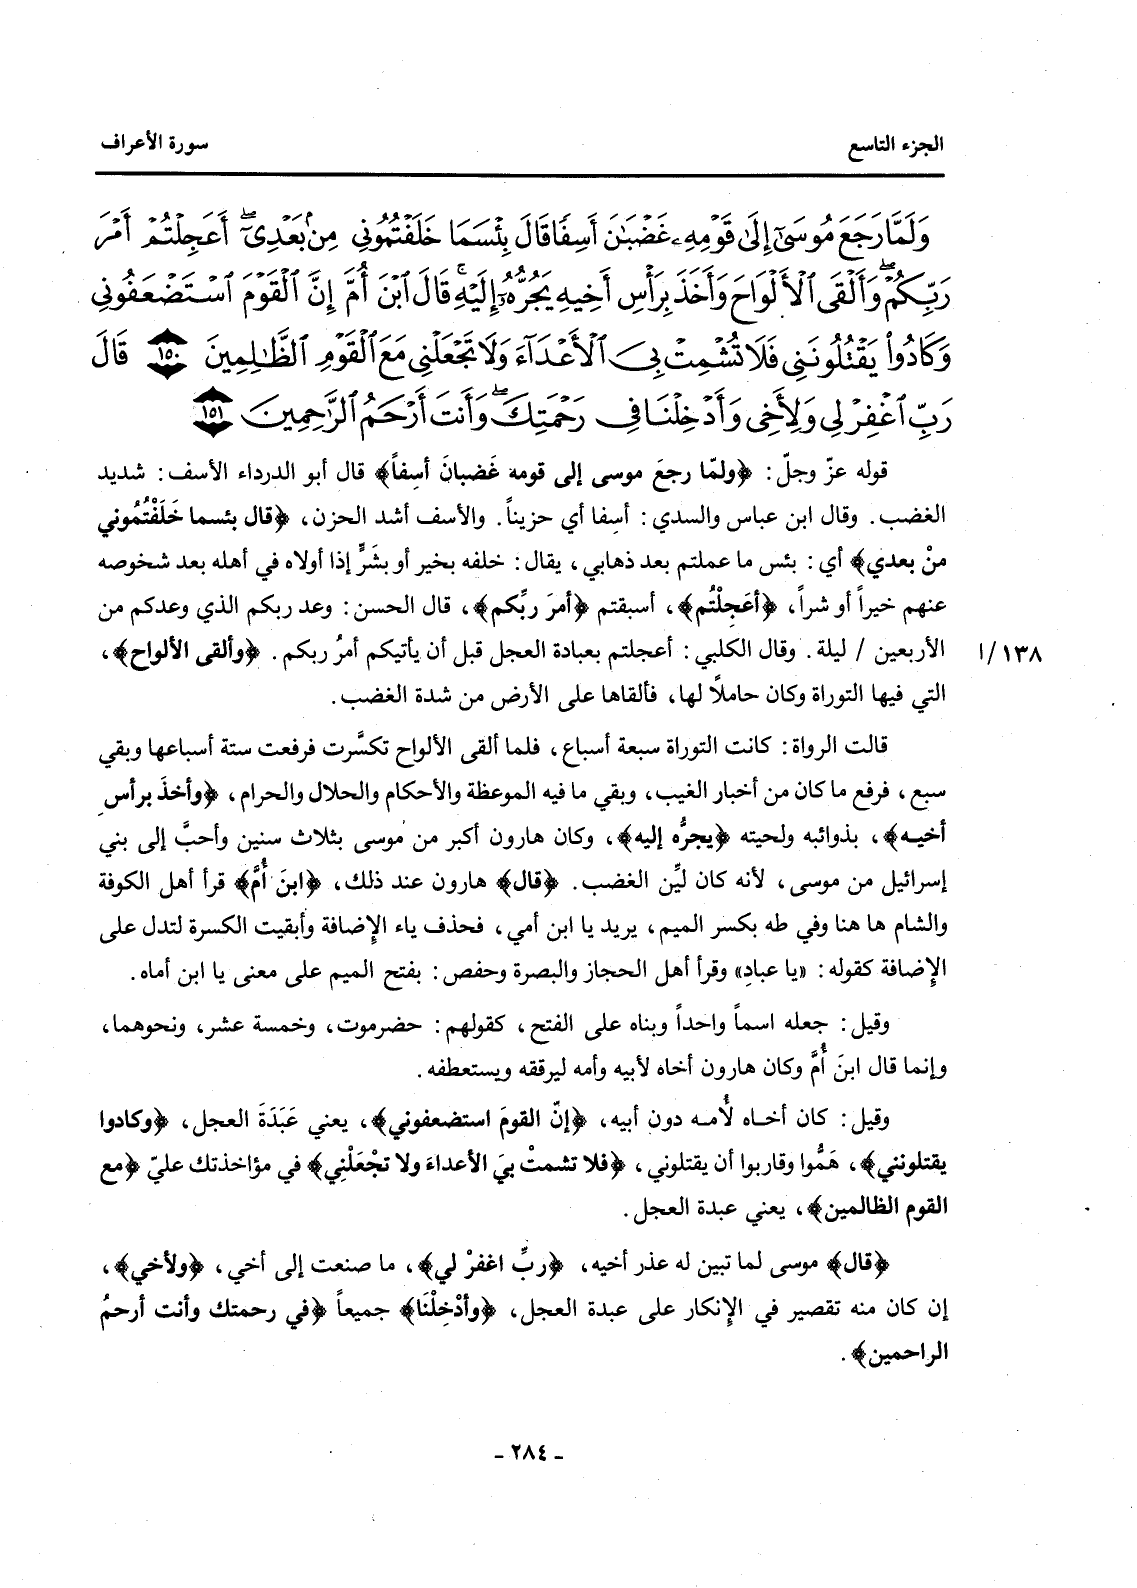 الجزء التاسع
سورة الأعراف
وَلَمَّا رَجَعَ مُوسَىٰٓ إِلَىٰ قَوْمِهِۦ غَضْبَٰنَ أَسِفًا قَالَ بِئْسَمَا خَلَفْتُمُونِي مِنۢ بَعْدِيٓۖ أَعَجِلْتُمْ أَمْرَ
رَبِّكُمْۖ وَأَلْقَى ٱلْأَلْوَاحَ وَأَخَذَ بِرَأْسِ أَخِيهِ يَجُرُّهُۥٓ إِلَيْهِۚ قَالَ ٱبْنَ أُمَّ إِنَّ ٱلْقَوْمَ ٱسْتَضْعَفُونِي
وَكَادُوا۟ يَقْتُلُونَنِي فَلَا تُشْمِتْ بِيَ ٱلْأَعْدَآءَ وَلَا تَجْعَلْنِي مَعَ ٱلْقَوْمِ ٱلظَّٰلِمِينَ ١٥٠ قَالَ
رَبِّ ٱغْفِرْ لِي وَلِأَخِي وَأَدْخِلْنَا فِي رَحْمَتِكَۖ وَأَنتَ أَرْحَمُ ٱلرَّٰحِمِينَ ١٥١
قوله عزّ وجلّ: ﴿ولمّا رجعَ موسى إلى قومه غَضبانَ أسِفاً﴾ قال أبو الدرداء الأسف: شديد
الغضب. وقال ابن عباس والسدي: أسِفا أي حزيناً. والأسف أشد الحزن، ﴿قال بئسما خَلَفْتُمُوني
منْ بعدي﴾ أي: بئس ما عملتم بعد ذهابي، يقال: خلفه بخير أو بشَرٍّ إذا أولاه في أهله بعد شخوصه
عنهم خيراً أو شراً، ﴿أعَجِلْتُم﴾، أسبقتم ﴿أمرَ ربِّكم﴾، قال الحسن: وعد ربكم الذي وعدكم من
الأربعين / ليلة. وقال الكلبي: أعجلتم بعبادة العجل قبل أن يأتيكم أمرُ ربكم. ﴿وألقى الألواح﴾، ١٣٨/ا
التي فيها التوراة وكان حاملاً لها، فألقاها على الأرض من شدة الغضب.
قالت الرواة: كانت التوراة سبعة أسباع، فلما ألقى الألواح تكسَّرت فرفعت ستة أسباعها وبقي
سبع، فرفع ما كان من أخبار الغيب، وبقي ما فيه الموعظة والأحكام والحلال والحرام، ﴿وأخذَ برأسِ
أخيـه﴾، بذوائبه ولحيته ﴿يجرُّه إليه﴾، وكان هارون أكبر من موسى بثلاث سنين وأحبَّ إلى بني
إسرائيل من موسى، لأنه كان ليِّن الغضب. ﴿قال﴾ هارون عند ذلك، ﴿ابنَ أُمَّ﴾ قرأ أهل الكوفة
والشام ها هنا وفي طه بكسر الميم، يريد يا ابن أمي، فحذف ياء الإضافة وأبقيت الكسرة لتدل على
الإضافة كقوله: «يا عبادِ» وقرأ أهل الحجاز والبصرة وحفص: بفتح الميم على معنى يا ابن أماه.
وقيل: جعله اسماً واحداً وبناه على الفتح، كقولهم: حضرموت، وخمسة عشر، ونحوهما،
وإنما قال ابنَ أُمَّ وكان هارون أخاه لأبيه وأمه ليرققه ويستعطفه.
وقيل: كان أخـاه لأُمـه دون أبيه، ﴿إنّ القومَ استضعفوني﴾، يعني عَبَدَةَ العجل، ﴿وكادوا
يقتلونني﴾، هَمُّوا وقاربوا أن يقتلوني، ﴿فلا تشمتْ بيَ الأعداءَ ولا تجْعَلْنِي﴾ في مؤاخذتك عليّ ﴿مع
القوم الظالمين﴾، يعني عبدة العجل.
﴿قال﴾ موسى لما تبين له عذر أخيه، ﴿ربِّ اغفرْ لي﴾، ما صنعت إلى أخي، ﴿ولأخي﴾،
إن كان منه تقصير في الإنكار على عبدة العجل، ﴿وأدْخِلْنَا﴾ جميعاً ﴿في رحمتك وأنت أرحمُ
الراحمين﴾.
- ٢٨٤ -